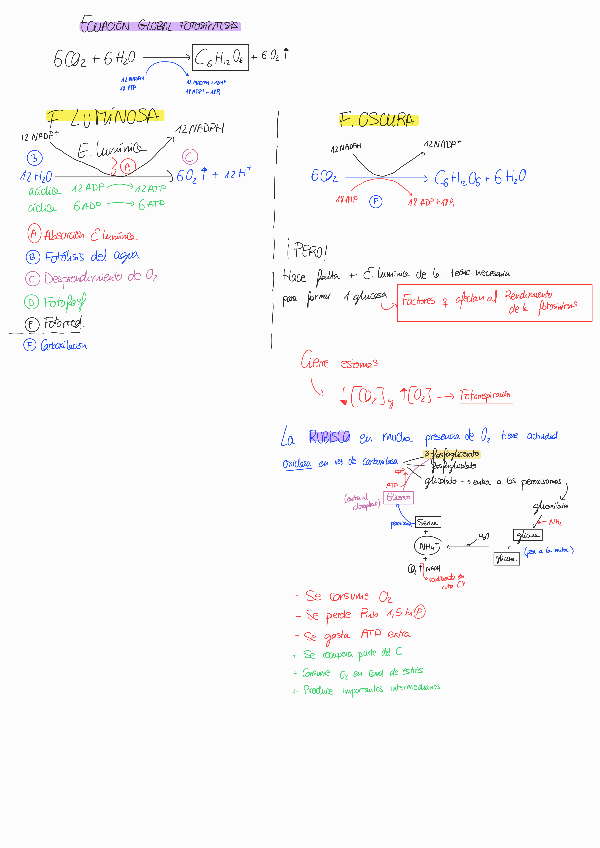 ECUACIÓN GLOBAL FOTOSÍNTESIS
6CO₂ + 6H₂O → C₆H₁₂O₆ + 6O₂ ↑
12 NADPH
18 ATP
18 ADP + 18Pi
F. LUMÍNOSA
12 NADP⁺
12 NADPH
E. lumínica
A
B
C
12 H₂O → 6O₂ ↑ + 12 H⁺
acíclica 12 ADP → 12 ATP
cíclica 6 ADP → 6 ATP
A Absorción E lumínica.
B Fotólisis del agua
C Desprendimiento de O₂
D Fotofosf
E Fotorred.
F Carboxilación
F. OSCURA
12 NADPH
12 NADP⁺
6CO₂ → C₆H₁₂O₆ + 6 H₂O
18 ATP
F
18 ADP + 18Pi
¡PERO!
Hace falta + E lumínica de la teóric necesaria
para formar 1 glucosa
Factores q afectan al Rendimiento
de la fotosíntesis
Cierre estomas
↓ [CO₂] y ↑ [O₂] → Fotorrespiración
La RUBISCO en mucha presencia de O₂ tiene actividad
oxidasa en vez de carboxilasa
3-fosfoglicerato
fosfoglicolato
glicolato → entra a los peroxisomas
ATP
Glicerato
peroxisoma
Serina
glioxilato
NH₂
glicina
glicina
(va a la mitoc)
+
NH₄⁺
+
CO₂ + NADH
- Se consume O₂
- Se pierde Rub 1,5 bi P
- Se gasta ATP extra
+ Se recupera parte del C
+ Consume O₂ en cond de estrés
+ Produce importantes intermediarios